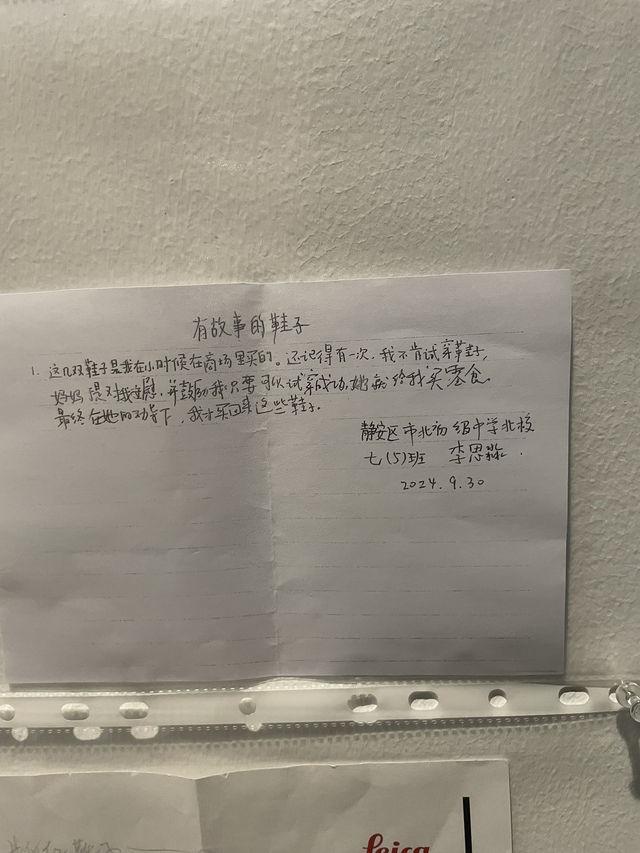 有故事的鞋子
1. 这几双鞋子是我在小时候在商场里买的。还记得有一次，我不肯试穿鞋子，
妈妈 对我 ，并鼓励我只要可以试穿成功，她就给我买零食。
最终在她的劝导下，我才买回来这些鞋子。
静安区市北初级中学北校
七(5)班 李思淼.
2024.9.30
Leica